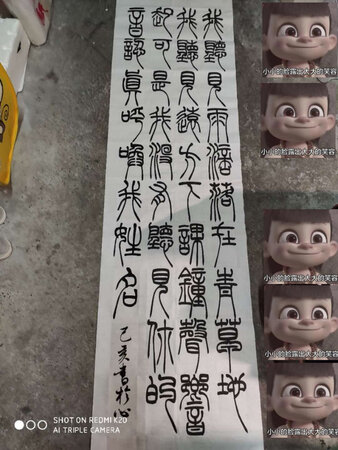 我聽見雨滴落在青草地
我聽見遠方下課鐘聲響
起可是我沒有聽見你的
音認真呼喚我姓名
己亥書於
小小的脸露出大大的笑容
小小的脸露出大大的笑容
小小的脸露出大大的笑容
小小的脸露出大大的笑容
小小的脸露出大大的笑容
SHOT ON REDMI K20
AI TRIPLE CAMERA